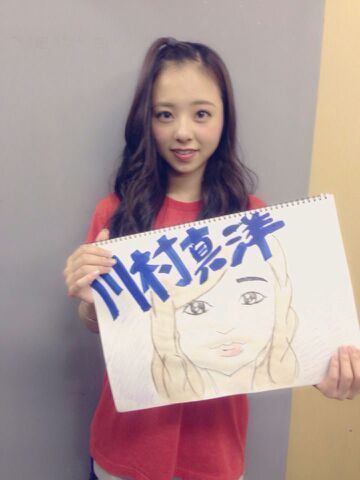 川村真洋